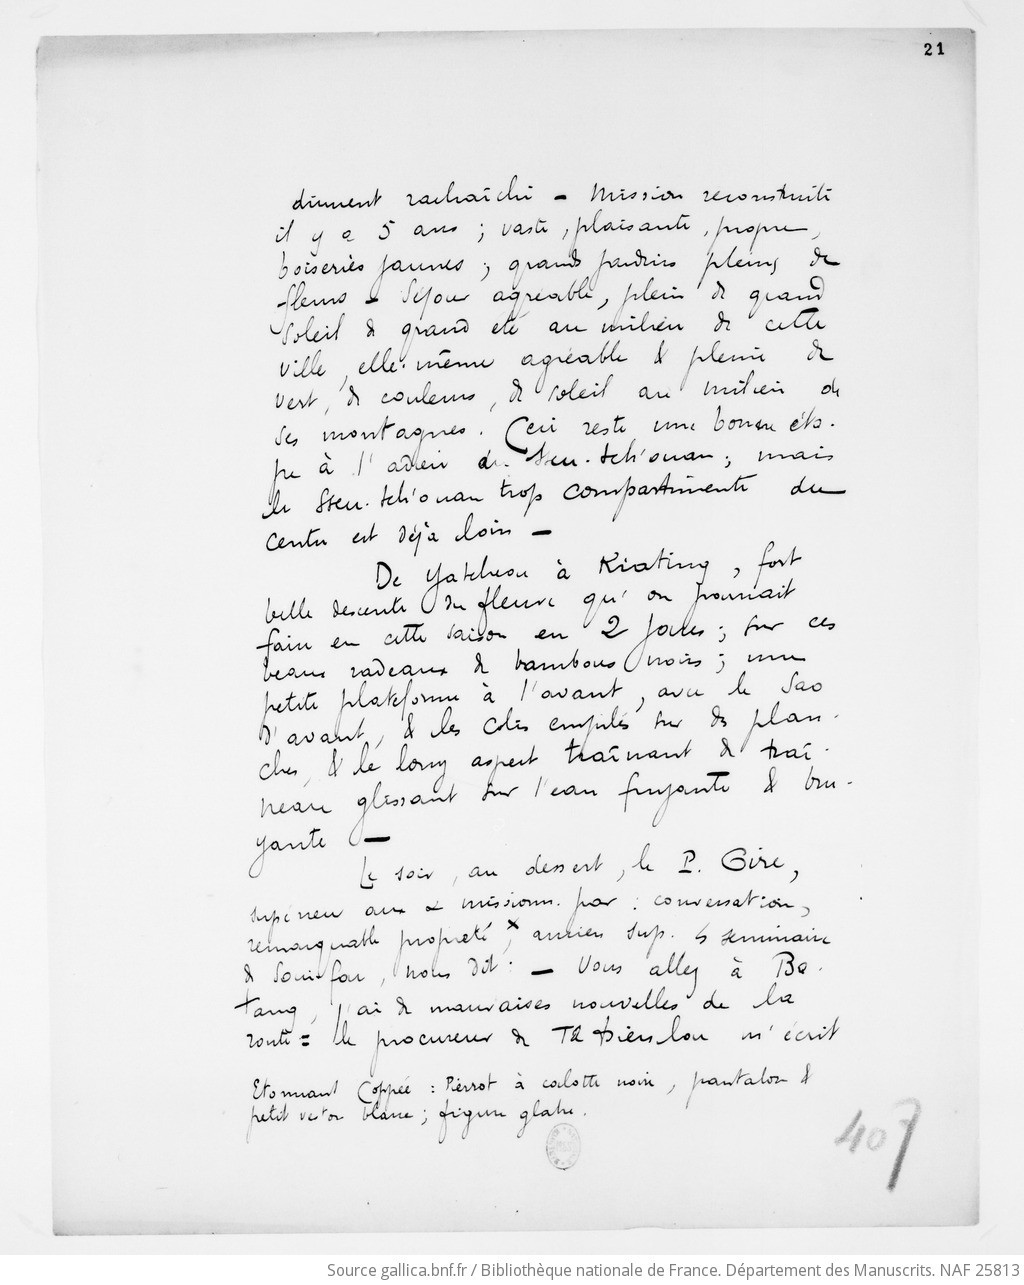 21
diument rafraîchi — Mission reconstruite
il y a 5 ans ; vaste, plaisante, propre,
boiseries jaunes ; grands jardins pleins de
fleurs — Séjour agréable, plein de grand
soleil & grand été au milieu de cette
ville, elle-même agréable & pleine de
vert, de couleurs, de soleil au milieu de
ses montagnes. Ceci reste une bonne éta-
pe à l'adieu du Sseu-tch'ouan ; mais
le Sseu-tch'ouan trop compartimenté du
centre est déjà loin —
De Yatcheou à Kiating, fort
belle descente du fleuve qu'on pourrait
faire en cette saison en 2 jours ; sur ces
beaux radeaux de bambous noirs ; une
petite plateforme à l'avant, avec le Sao
d'avant, & les colis empilés sur des plan-
ches, & le long aspect traînant de traî-
neau glissant sur l'eau fuyante & bru-
yante —
Le soir, au dessert, le P. Gire,
supérieur aux missions. par : conversation,
remarquable propreté x, ancien sup. séminaire
de Souifou, nous dit : — Vous allez à Ba-
tang, j'ai de mauvaises nouvelles de la
route = le procureur de Tatsienlou m'écrit
Etonnant Coppée : Pierrot à calotte noire, pantalon &
petit veston blanc ; figure glabre.
407
Source gallica.bnf.fr / Bibliothèque nationale de France. Département des Manuscrits. NAF 25813